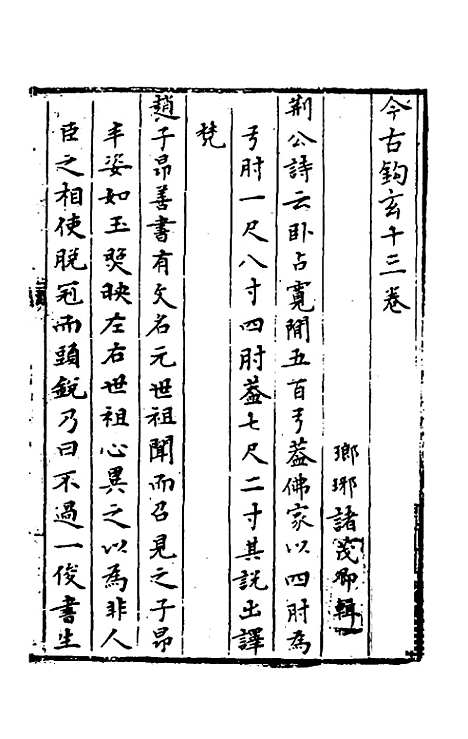 今古鉤玄十三卷
瑯琊諸茂卿輯
荆公詩云卧占寬閒五百弓葢佛家以四肘為
弓肘一尺八寸四肘葢七尺二寸其說出譯
梵
趙子昂善書有文名元世祖聞而召見之子昂
丰姿如玉煚映左右世祖心異之以為非人
臣之相使脫冠而頭銳乃曰不過一俊書生